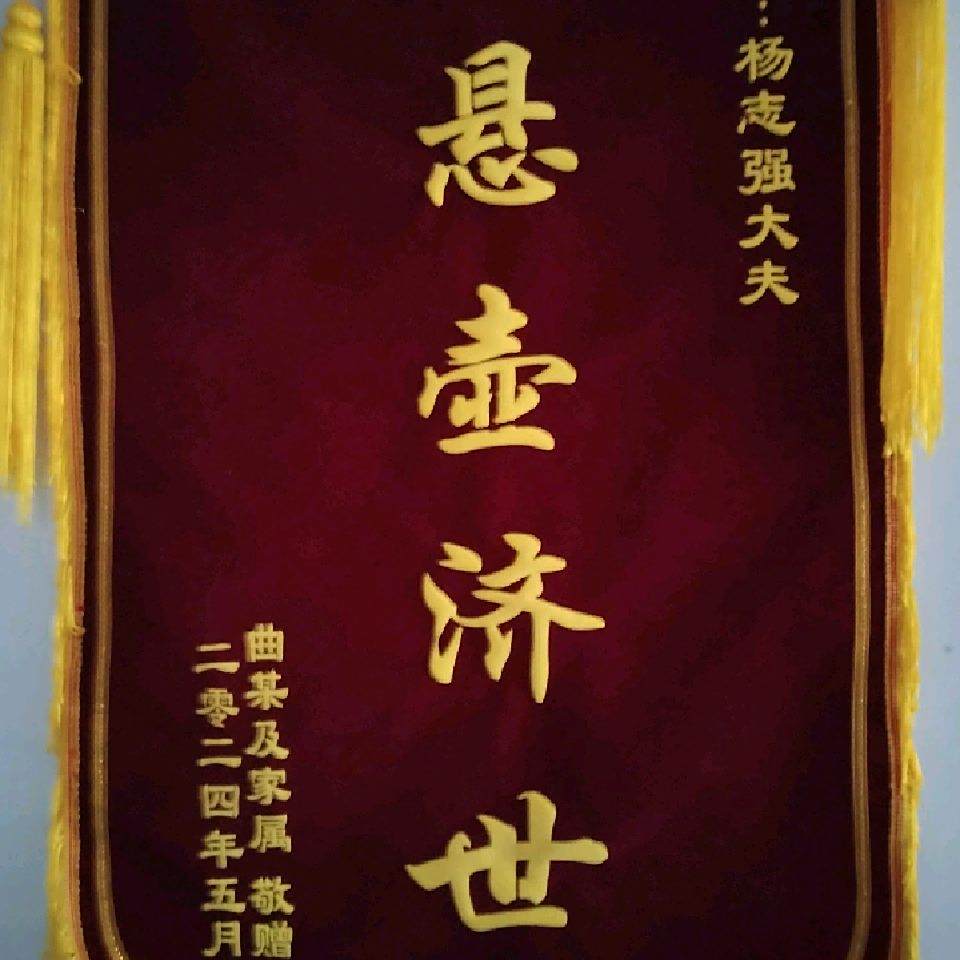 ：杨志强大夫
悬壶济世
曲某及家属 敬赠
二零二四年五月